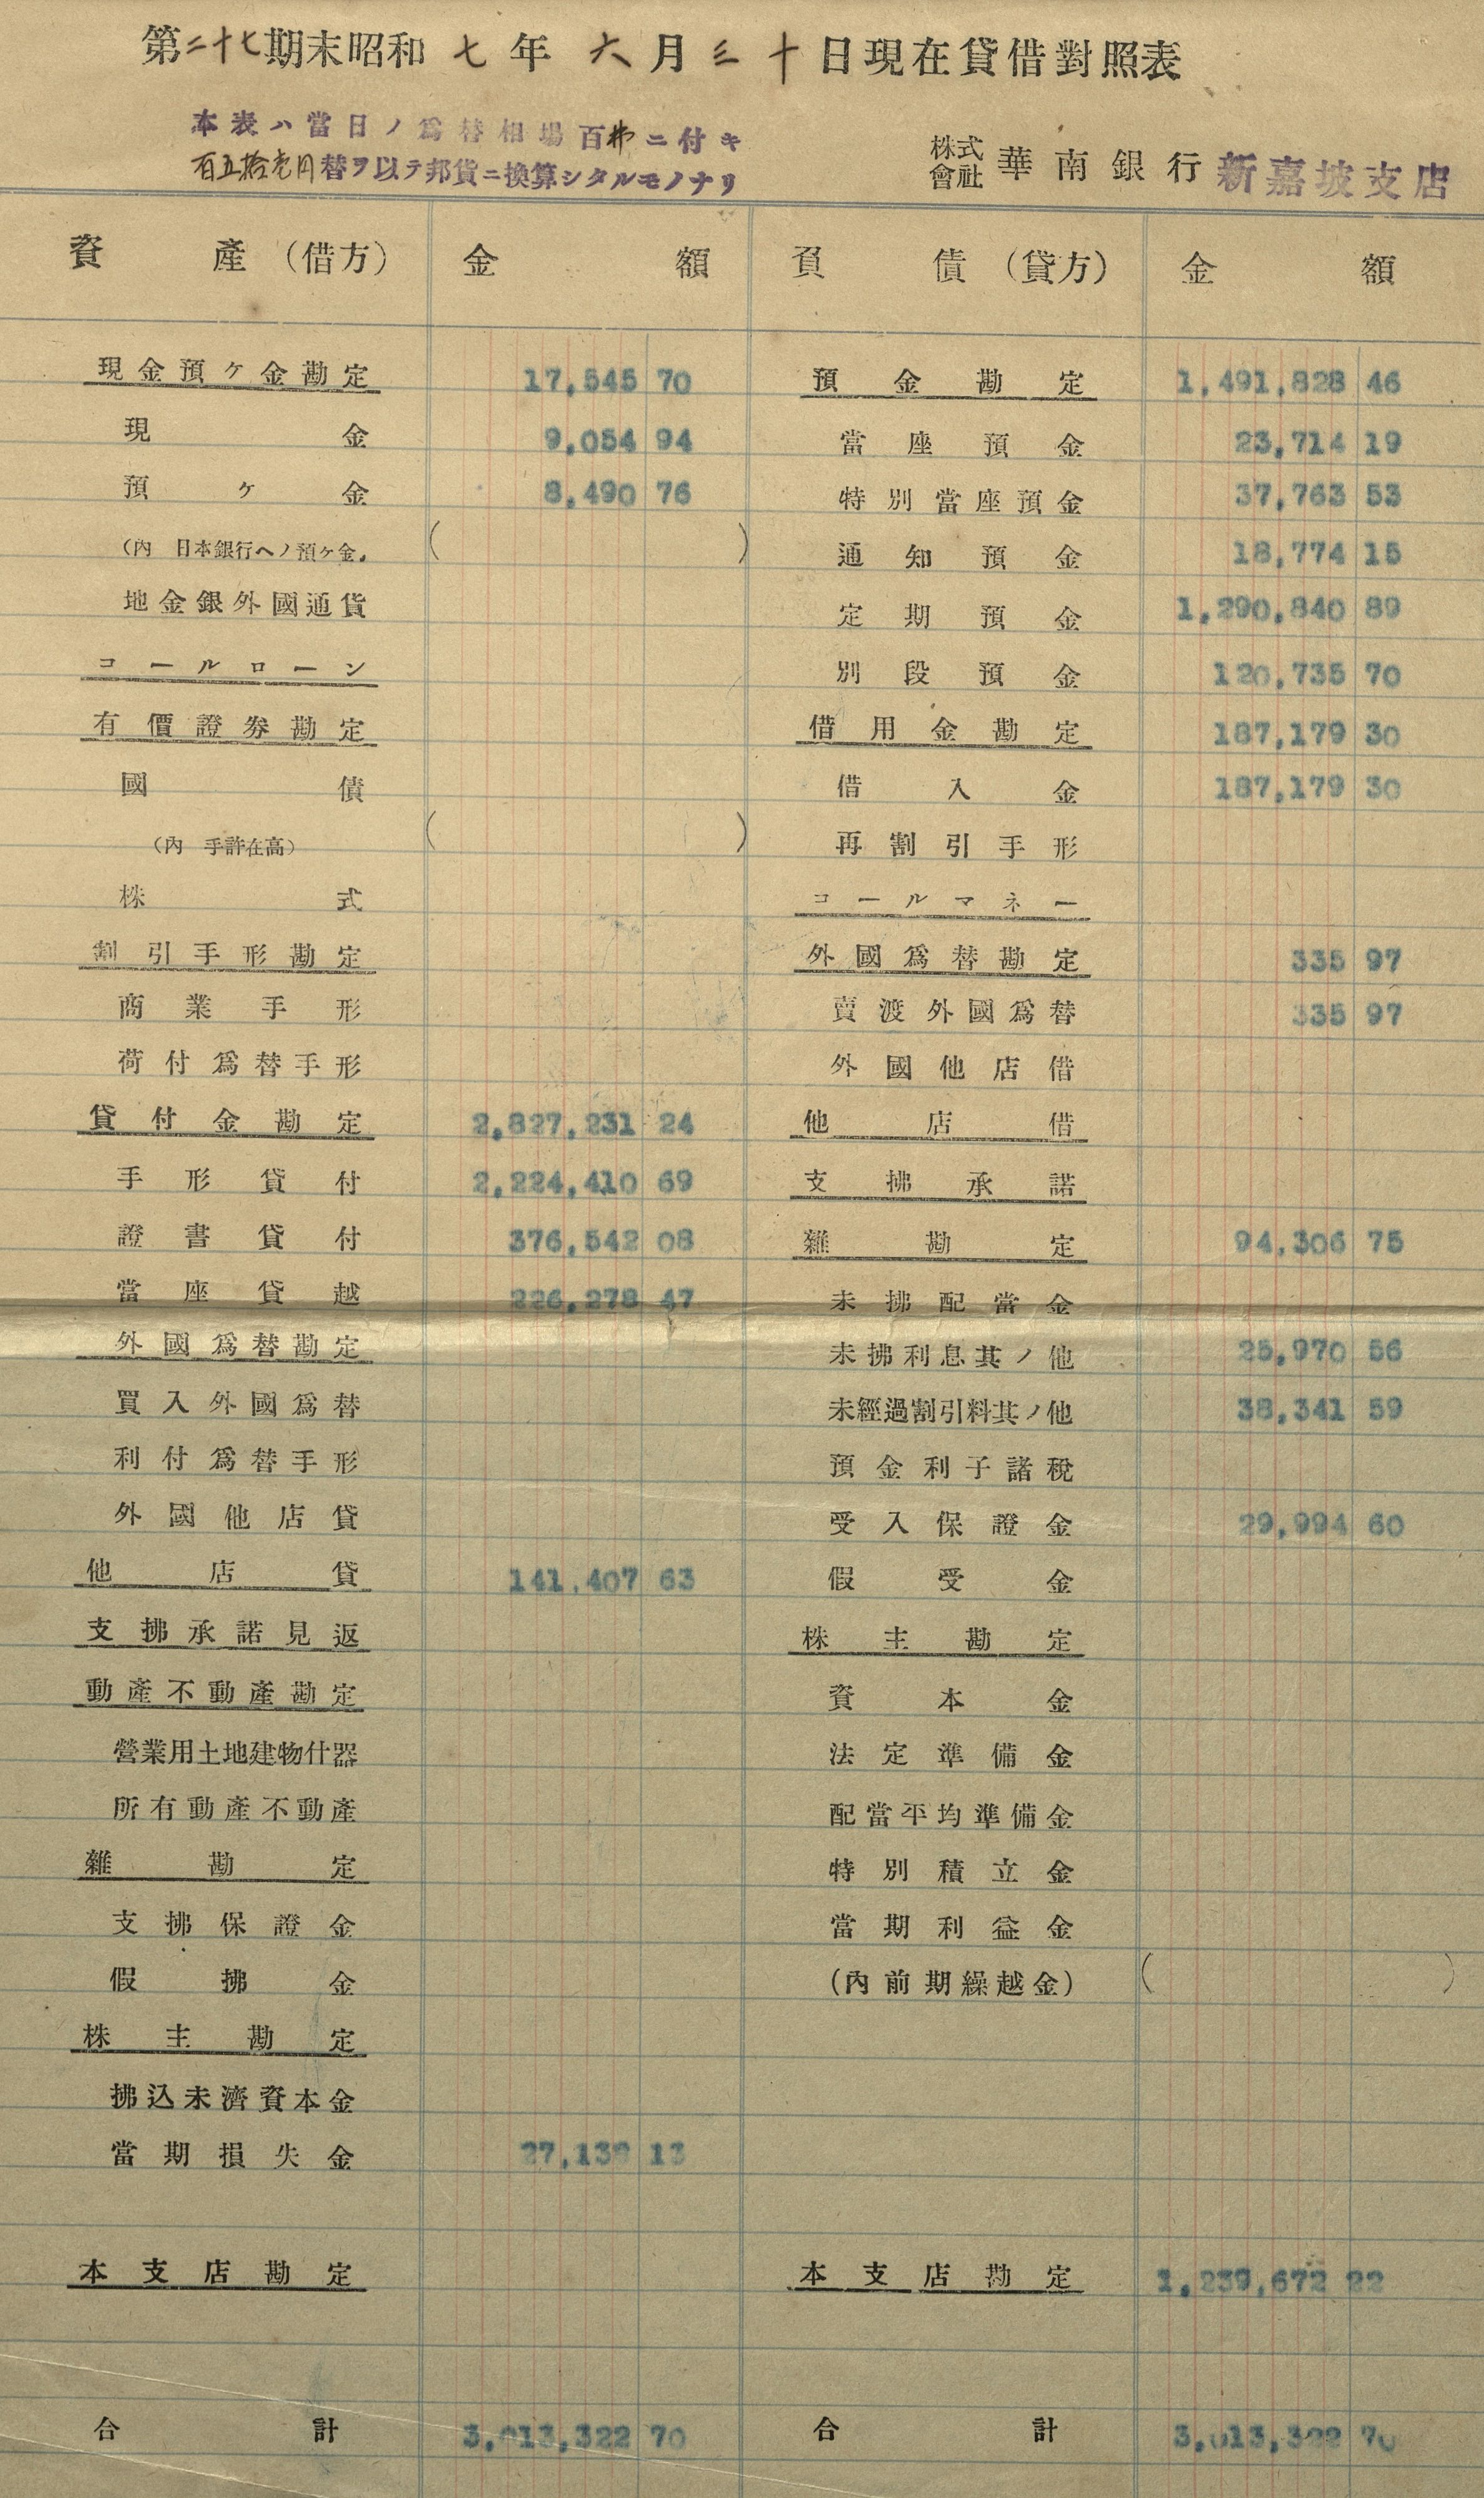 第二十七期末昭和七年六月三十日現在貸借對照表
本表ハ當日ノ爲替相場百弗ニ付キ
百五拾壱円替ヲ以テ邦貨ニ換算シタルモノナリ
株式會社 華南銀行 新嘉坡支店
資產(借方) 金額 負債(貸方) 金額
現金預ケ金勘定 17,545 70 預金勘定 1,491,828 46
現金 9,054 94 當座預金 23,714 19
預ケ金 8,490 76 特別當座預金 37,763 53
(內 日本銀行ヘノ預ケ金) ( ) 通知預金 18,774 15
地金銀外國通貨 定期預金 1,290,840 89
コールローン 別段預金 120,735 70
有價證券勘定 借用金勘定 187,179 30
國債 借入金 187,179 30
(內 手許在高) ( ) 再割引手形
株式 コールマネー
割引手形勘定 外國爲替勘定 335 97
商業手形 賣渡外國爲替 335 97
荷付爲替手形 外國他店借
貸付金勘定 2,827,231 24 他店借
手形貸付 2,224,410 69 支拂承諾
證書貸付 376,542 08 雜勘定 94,306 75
當座貸越 226,278 47 未拂配當金
外國爲替勘定 未拂利息其ノ他 25,970 56
買入外國爲替 未經過割引料其ノ他 38,341 59
利付爲替手形 預金利子諸稅
外國他店貸 受入保證金 29,994 60
他店貸 141,407 63 假受金
支拂承諾見返 株主勘定
動產不動產勘定 資本金
營業用土地建物什器 法定準備金
所有動產不動產 配當平均準備金
雜勘定 特別積立金
支拂保證金 當期利益金
假拂金 (內前期繰越金) ( )
株主勘定
拂込未濟資本金
當期損失金 27,138 13
本支店勘定 本支店勘定 1,239,672 22
合計 3,013,322 70 合計 3,013,322 70